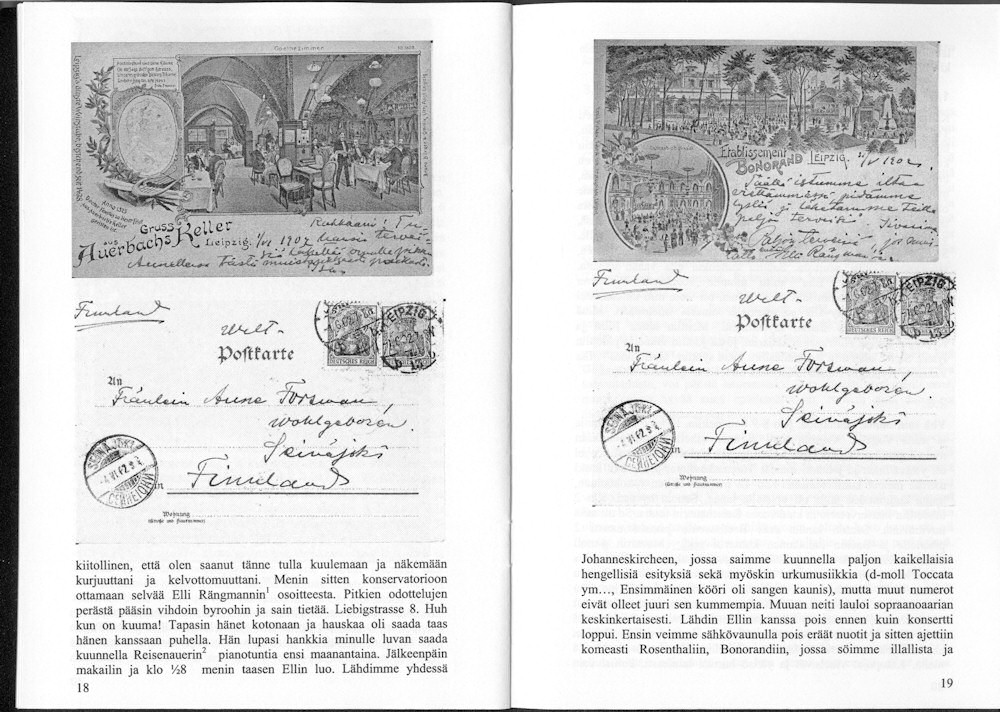 Gruss
aus
Auerbachs Keller
Leipzig. 1/VI 1902
Finnland
Welt-
Postkarte
DEUTSCHES REICH
LEIPZIG
An
Fräulein Anne Forsman,
wohlgeboren.
Seinäjoki
in Finnland
SEINÄJOKI
Wohnung
(Straße und Hausnummer)
kiitollinen, että olen saanut tänne tulla kuulemaan ja näkemään
kurjuuttani ja kelvottomuuttani. Menin sitten konservatorioon
ottamaan selvää Elli Rängmannin¹ osoitteesta. Pitkien odottelujen
perästä pääsin vihdoin byroohin ja sain tietää. Liebigstrasse 8. Huh
kun on kuuma! Tapasin hänet kotonaan ja hauskaa oli saada taas
hänen kanssaan puhella. Hän lupasi hankkia minulle luvan saada
kuunnella Reisenauerin² pianotuntia ensi maanantaina. Jälkeenpäin
makailin ja klo ½8 menin taasen Ellin luo. Lähdimme yhdessä
18
Etablissement
BONORAND LEIPZIG.
Täällä istumme iltaa
Paljon terveisiä
Elli Rängman
Finnland
Welt-
Postkarte
DEUTSCHES REICH
LEIPZIG
An
Fräulein Anne Forsman,
wohlgeboren.
Seinäjoki
in Finnland
SEINÄJOKI
Wohnung
(Straße und Hausnummer)
Johanneskircheen, jossa saimme kuunnella paljon kaikellaisia
hengellisiä esityksiä sekä myöskin urkumusiikkia (d-moll Toccata
ym…, Ensimmäinen kööri oli sangen kaunis), mutta muut numerot
eivät olleet juuri sen kummempia. Muuan neiti lauloi sopraanoaarian
keskinkertaisesti. Lähdin Ellin kanssa pois ennen kuin konsertti
loppui. Ensin veimme sähkövaunulla pois eräät nuotit ja sitten ajettiin
komeasti Rosenthaliin, Bonorandiin, jossa söimme illallista ja
19